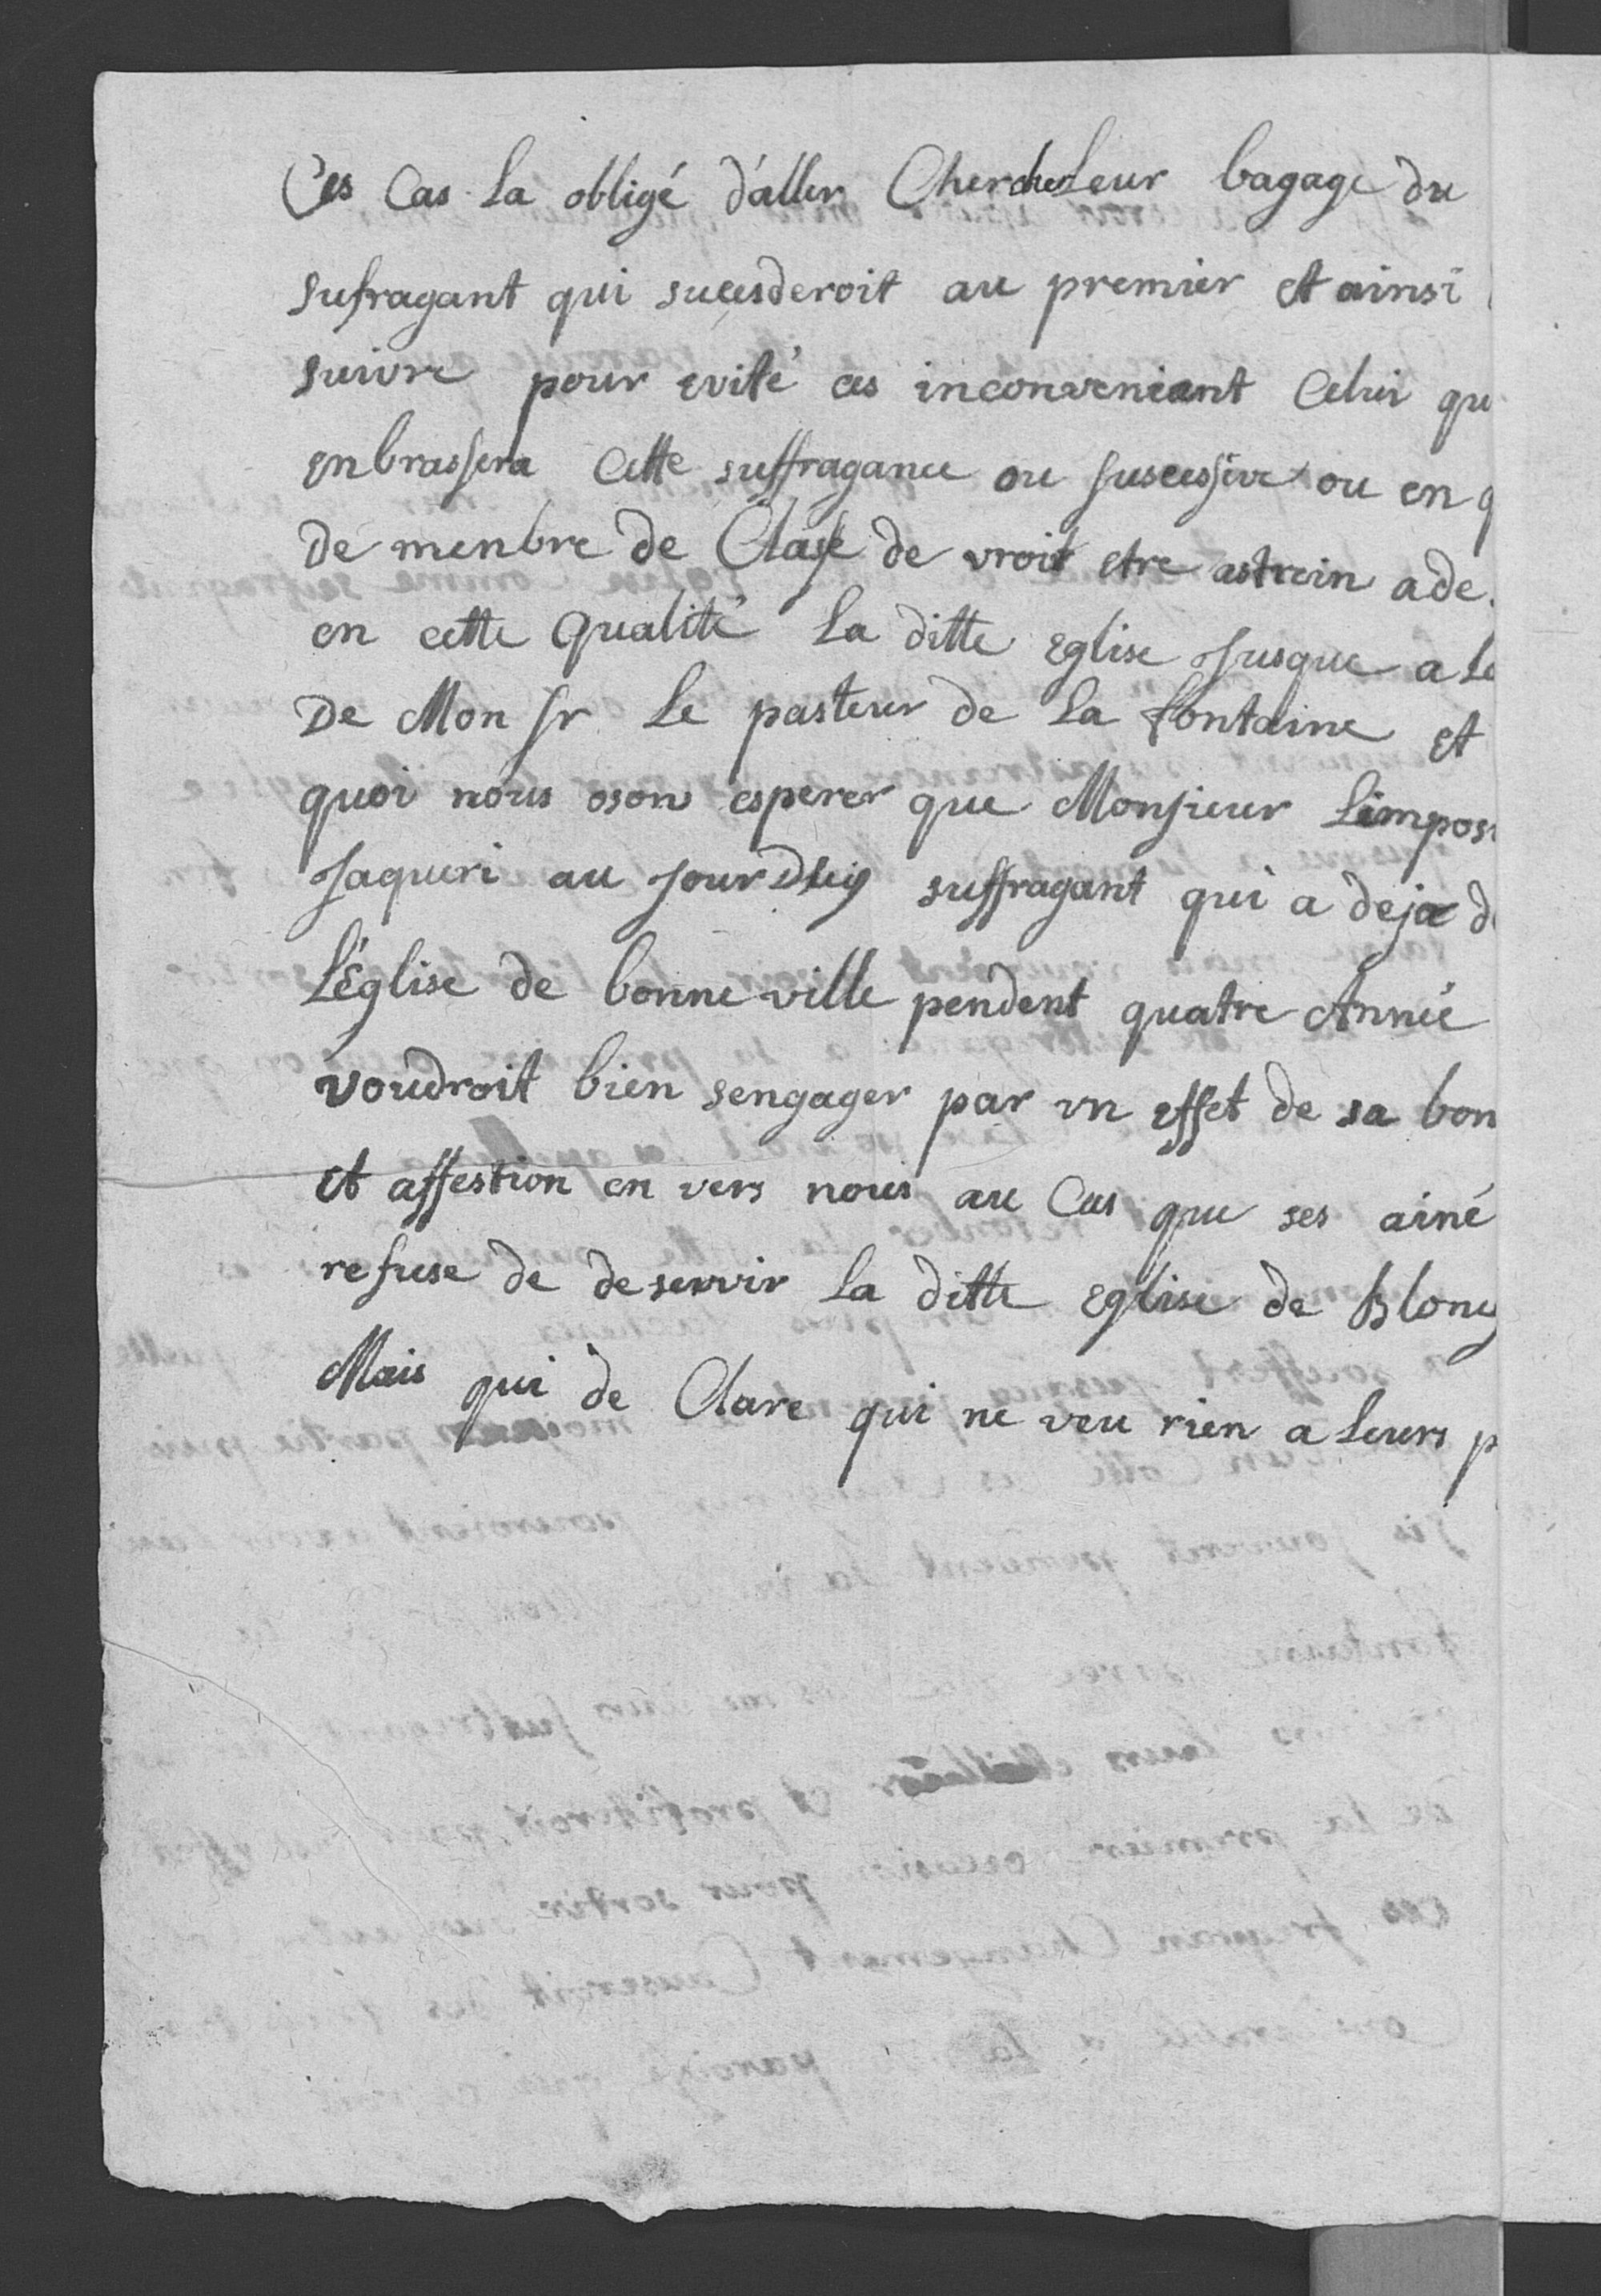 Ces Cas la obligé d'aller Chercher Leur bagage du
sufragant qui sucesderoit au premier et ainsi
suivre pour evité ces inconveniant Celui qu
enbrassera Cette suffragance ou suscessive ou en q
de menbre de Classe de vroit etre astrein a de
en cette Qualité La ditte Eglise Jusque a le
De Mon sr Le pasteur de La fontaine et
quoi nous oson esperer que Monsieur Limpos
Jaqueri au Jour Duy suffragant qui a deja d
L'église de bonne ville pendent quatre Année
voudroit bien sengager par un effet de sa bon
et affestion en vers nous au Cas que ses ainé
refuse de deservir La ditte Eglise de
Mais qui de Clare qui ne veu rien a Leurs p